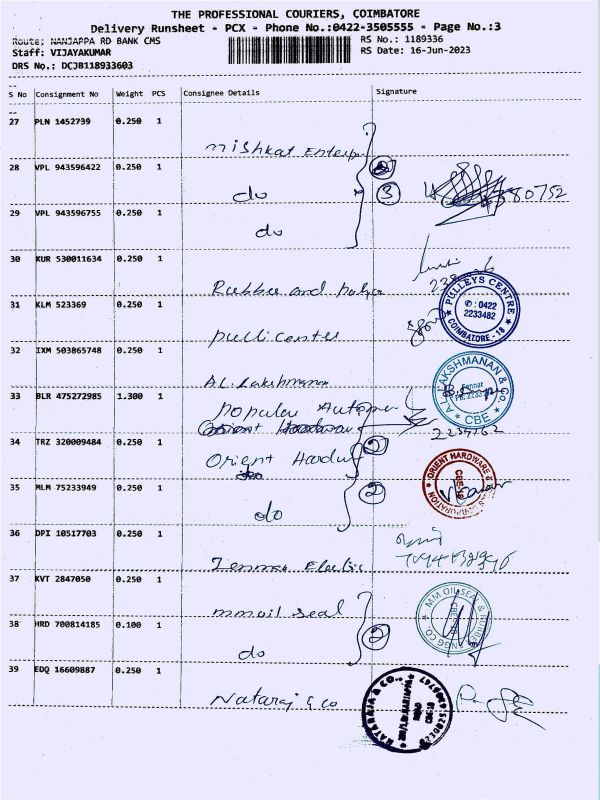 THE PROFESSIONAL COURIERS, COIMBATORE
Delivery Runsheet - PCX - Phone No.:0422-3505555 - Page No.:3
Route; NANJAPPA RD BANK CMS
RS No.: 1189336
Staff: VIJAYAKUMAR
RS Date: 16-Jun-2023
DRS No.: DCJB118933603
S No Consignment No Weight PCS Consignee Details Signature
27 PLN 1452739 0.250 1
Mishkat Enterp
28 VPL 943596422 0.250 1
do
3
29 VPL 943596755 0.250 1
do
30 KUR 530011634 0.250 1
Rubber and
31 KLM 523369 0.250 1
PULLEYS CENTRE
✆ : 0422
2233482
COIMBATORE - 18
pulli center
32 IXM 503865748 0.250 1
A.L. Lakshmanan
A.L. LAKSHMANAN & Co.
CBE
33 BLR 475272985 1.300 1
Popular
34 TRZ 320009484 0.250 1
Orient Hardw
ORIENT HARDWARE &
CBE-18
35 MLM 75233949 0.250 1
do
2
36 DPI 10517703 0.250 1
37 KVT 2847050 0.250 1
mm oil seal
MM OIL SEAL &
ENGG CO.
38 HRD 700814185 0.100 1
do
2
39 EDQ 16609887 0.250 1
Nataraj & co
NATARAJA & CO.
CBE-18